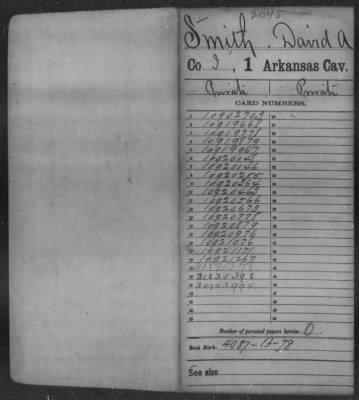 2045
Smith, David A
Co I, 1 Arkansas Cav.
Private Private
CARD NUMBERS.
1 10902703
2 10919668
3 10919771
4 10919879
5 10919967
6 10920048
7 10920146
8 10920255
9 10920364
10 10920463
11 10920566
12 10920673
13 10920778
14 10920879
15 10920976
16 10921076
17 10921171
18 10921267
31835398
Number of personal papers herein 0
Book Mark: 4087-B-78
See also